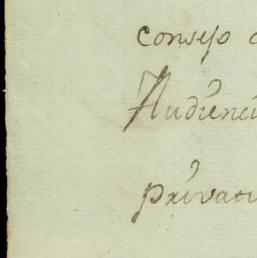 consejo
Audienci
privati